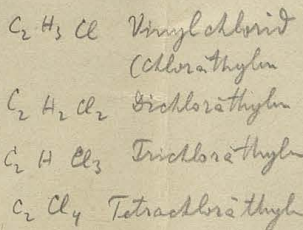 C2 H3 Cl Vinylchlorid
(Chloräthylen
C2 H2 Cl2 Dichloräthylen
C2 H Cl3 Trichloräthylen
C2 Cl4 Tetrachloräthylen